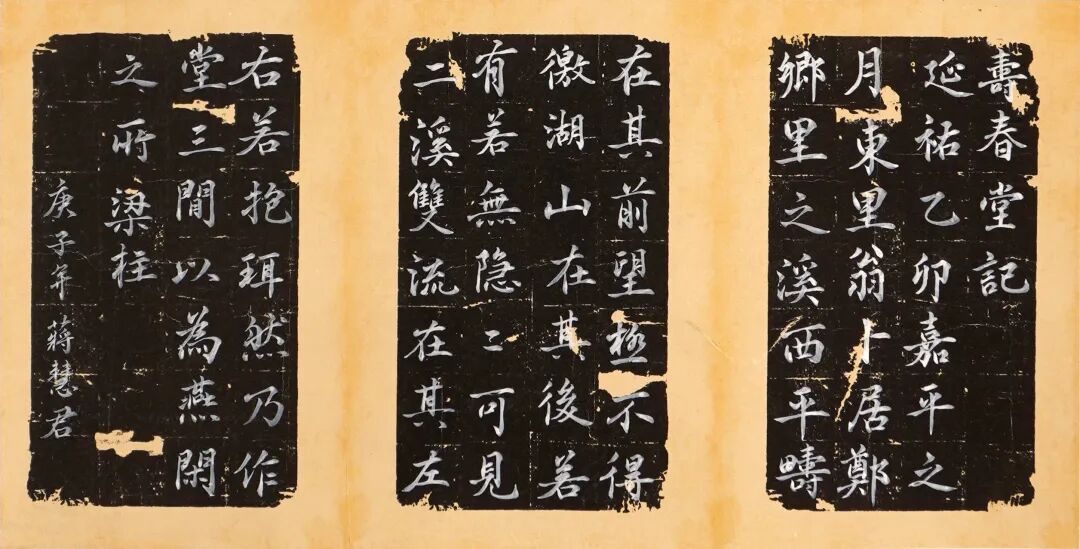 壽春堂記
延祐乙卯嘉平之
月東里翁卜居鄭
鄉里之溪西平疇
在其前望極不得
徼湖山在其後若
有若無隐〻可見
二溪雙流在其左
右若抱珥然乃作
堂三間以為燕閑
之所梁柱
庚子年 蔣慧君